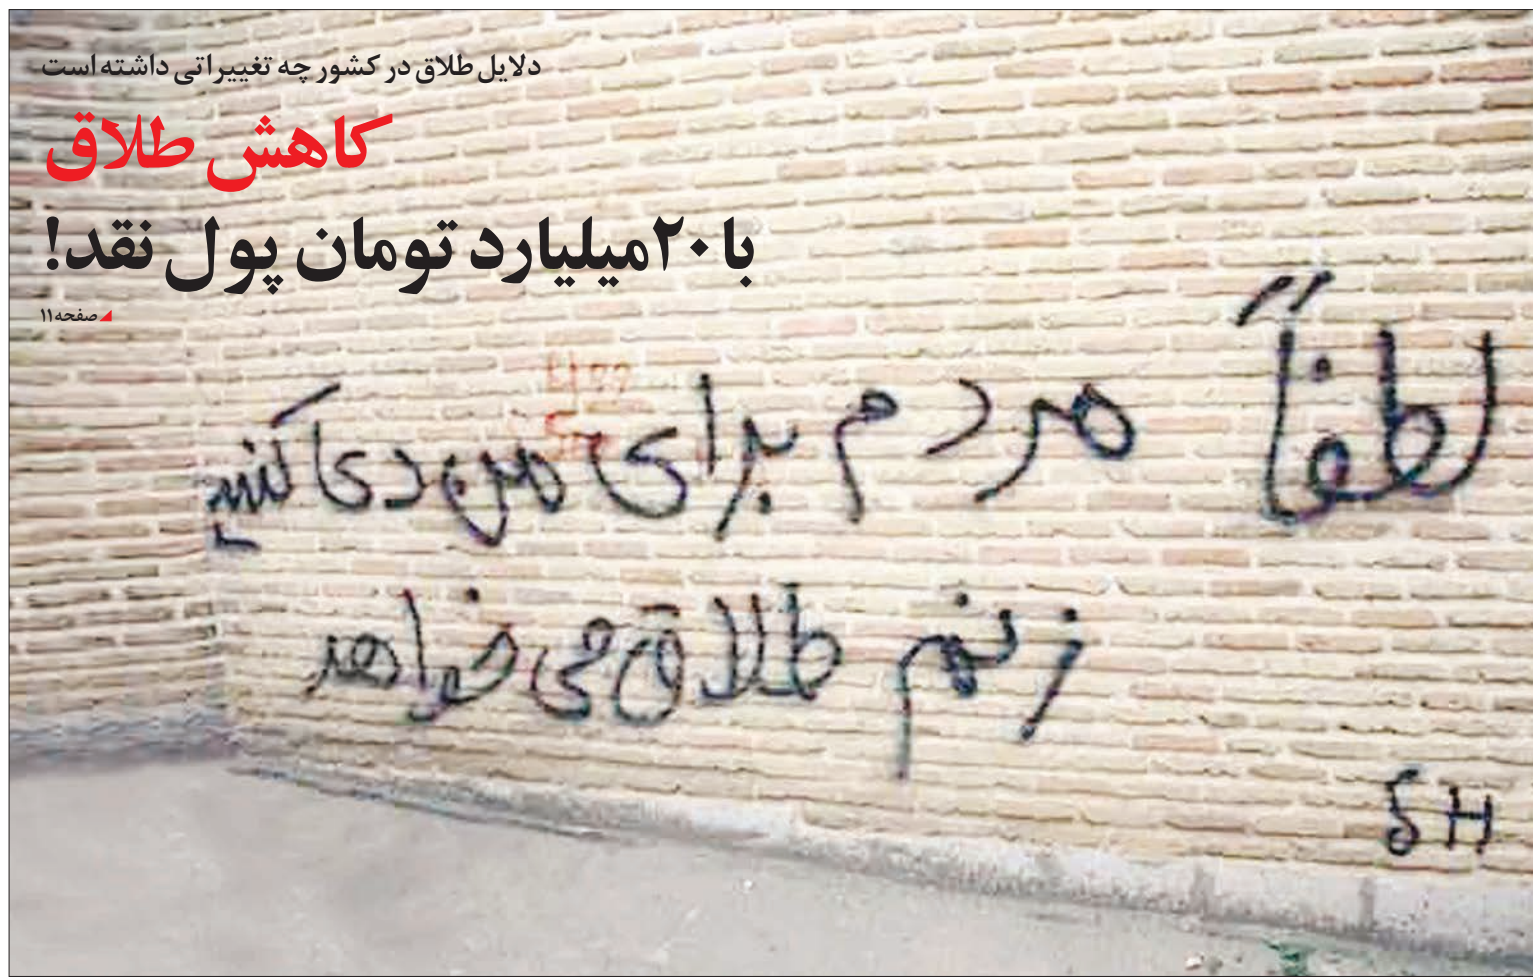 دلایل طلاق در کشور چه تغییراتی داشته است
کاهش طلاق
با ۲۰میلیارد تومان پول نقد!
صفحه۱۱
لطفاً مردم برای من دعا کنید
زنم طلاق می خواهد
δ H